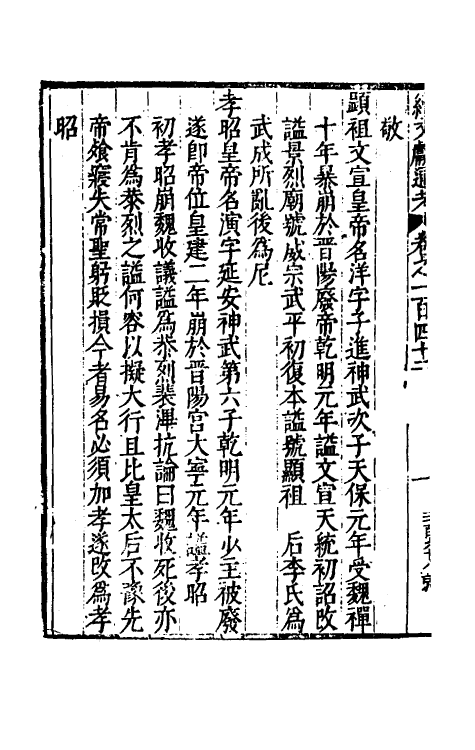 續文獻通考 卷之一百四十三
敬
顯祖文宣皇帝名洋字子進神武次子天保元年受魏禪
十年暴崩於晋陽廢帝乾明元年謚文宣天統初詔改
謚景烈廟號威宗武平初復本謚號顯祖 后李氏為
武成所亂後為尼
孝昭皇帝名演字延安神武第六子乾明元年少主被廢
遂即帝位皇建二年崩於晋陽宮大寧元年謚孝昭
初孝昭崩魏收議謚為恭烈裴澤抗論曰魏收死後亦
不肯為恭烈之謚何容以擬大行且比皇太后不豫先
帝飧寢失常聖躬貶損今者易名必須加孝遂改為孝
昭